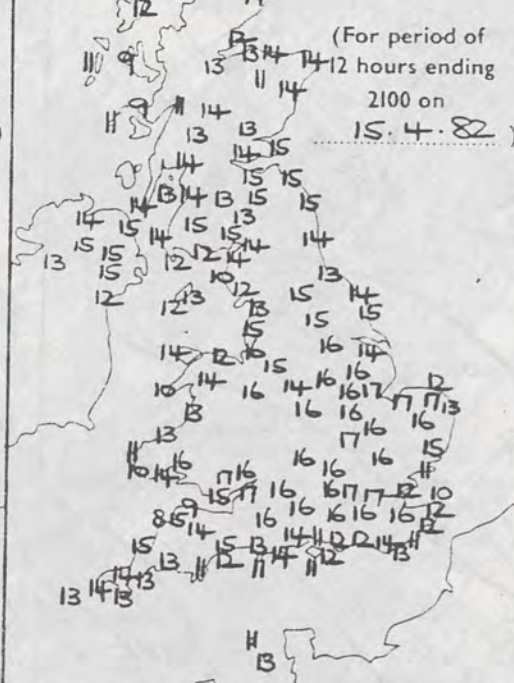 (For period of
12 hours ending
2100 on
15.4.82 )
12
12
11 9 13 14 14
13 11
14
9 11 14
11 13 13
14 15
14 15 15
13 14 13 15 15
14 14 15 13
15 14 15 14 14
15 15 12 12 14
13 15 10
12 12 13 12 13
15 14
13 15 15
15 16 14
14 12 16 15 16 16
10 14 16 14 16 17 12
13 16 16 17 17 13
13 17 16 16
11 16 16 16 15
10 14 16 17 16 16 11
15 17 16 16 17 17 12 10
9 16 16 16 16 12
8 15 14 16 14 11 12 12 14 11 12
15 13 15 13 14 12 13
14 13 11 12 11 11
13 14 13
11
13